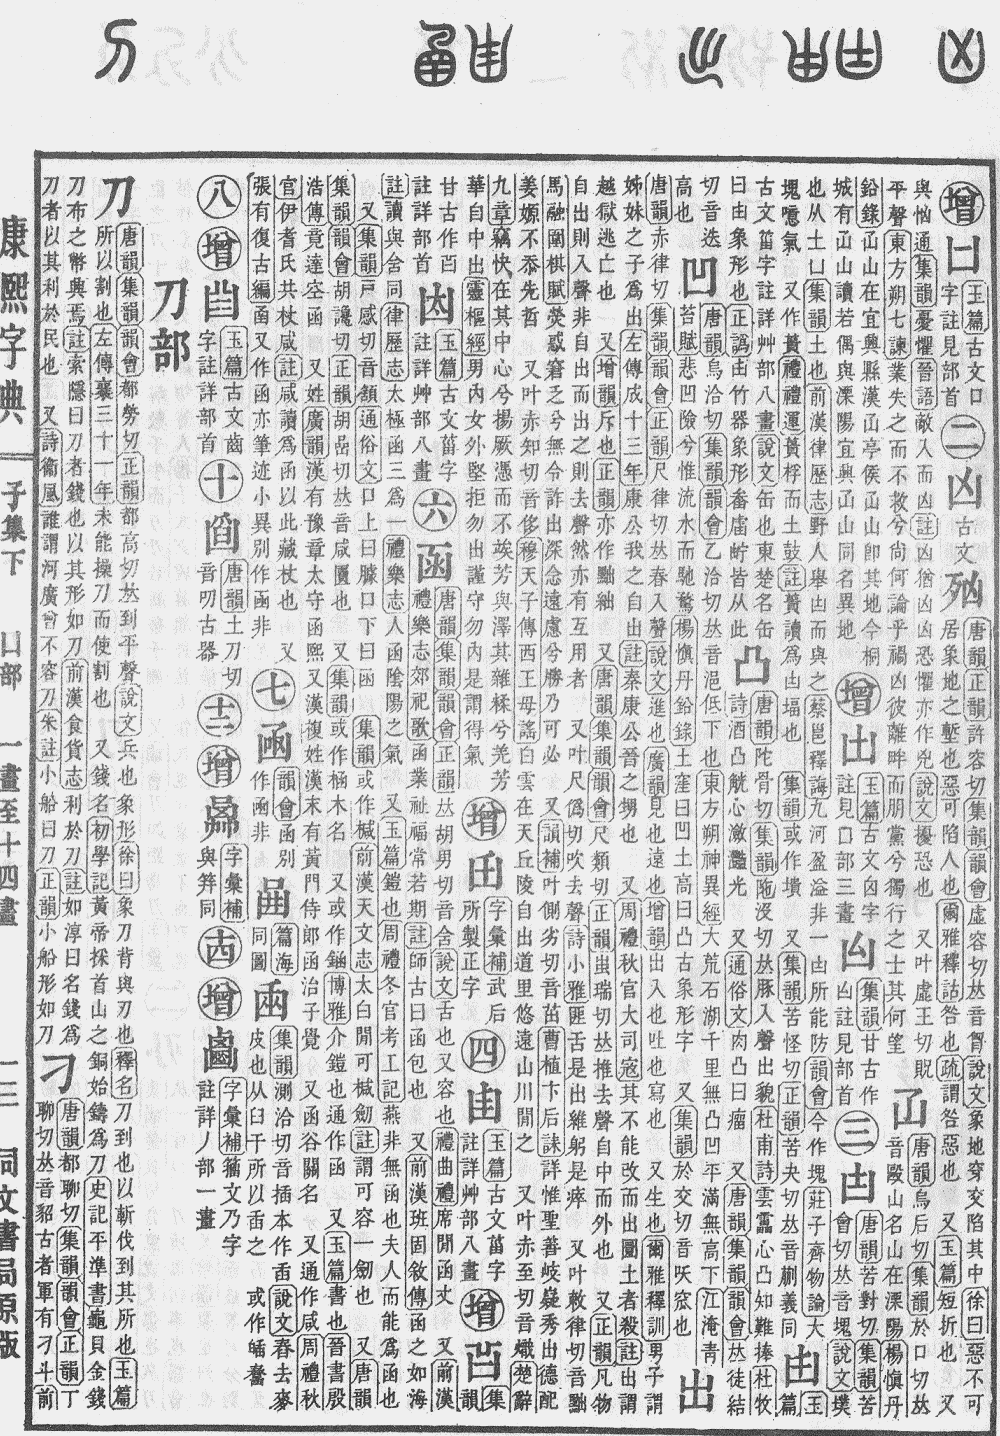 增𠙵
玉篇古文口
字註見部首
二凶
古文
𣧑
唐韻正韻許容切集韻韻會虛容切𠀤音匈說文象地穿交陷其中徐曰惡不可
居象地之塹也惡可陷人也爾雅釋詁咎也疏謂咎惡也 又玉篇短折也 又
與忷通集韻憂懼晉語敵入而凶註凶猶凶凶恐懼亦作兇說文擾恐也 又叶虛王切貺
平聲東方朔七諫業失之而不救兮尚何論乎禍凶彼離畔而朋黨兮獨行之士其何望
唐韻烏后切集韻於口切𠀤
音毆山名山在溧陽楊慎丹
城有㓙山讀若偶與溧陽宜興㓙山同名異地
增出
玉篇古文凶字
註見口部三畫
集韻苔甘古作
凶註見部首
三凷
唐韻苦對切集韻苦
會切𠀤音塊說文墣
也从土凵集韻土也前漢律歷志野人舉凷而與之蔡邕釋誨九河盈溢非一凷所能防韻會今作塊莊子齊物論大
塊噫氣 又作蕢禮禮運蕢桴而土鼓註蕢讀為凷堛也 集韻或作墤 又集韻苦怪切正韻苦夬切𠀤音蒯義同
甴
玉
篇
古文菑字註詳艸部八畫說文缶也東楚名缶
曰甴象形也
凸
唐韻陀骨切集韻陁沒切𠀤豚入聲出貌杜甫詩雲靁心凸知難捧杜牧
詩酒凸觥心瀲灩光 又通俗文肉凸曰瘤 又唐韻集韻韻會𠀤徒結
切音迭
凹
唐韻烏洽切集韻韻會乙洽切𠀤音浥低下也東方朔神異經大荒石湖千里無凸凹平滿無高下江淹青
苔賦悲凹險兮惟流水而馳騖楊慎丹鉛錄土窪曰凹土高曰凸古象形字 又集韻於交切音㕭窊也
高也
出
唐韻赤律切集韻韻會正韻尺律切𠀤春入聲說文進也廣韻見也遠也增韻出入也吐也寫也 又生也爾雅釋訓男子謂
姊妹之子為出左傳成十三年康公我之自出註秦康公晉之甥也 又周禮秋官大司寇其不能改而出圜土者殺註出謂
越獄逃亡也 又增韻斥也正韻亦作黜絀 又唐韻集韻韻會尺類切正韻蚩瑞切𠀤推去聲自中而外也 又正韻凡物
自出出則入聲非自出而出之則去聲然亦有互用者 又叶尺偽切吹去聲詩小雅匪舌是出維躬是瘁 又叶敕律切音黜
馬融圍棋賦熒惑窘乏兮無令詐出深念遠慮兮勝乃可必 又韻補叶側劣切音茁曹植卞后誄詳惟聖善岐嶷秀出德配
姜嫄不忝先哲 又叶赤知切音侈穆天子傳西王母謠白雲在天丘陵自出道里悠遠山川閒之 又叶赤至切音熾楚辭
九章竊快在其中心兮揚厥憑而不竢芳與澤其雜糅兮羌芳
華自中出靈樞經男內女外堅拒勿出謹守勿內是謂得氣
增
字彙補武后
所製正字
四甴
玉篇古文菑字
註詳艸部八畫
增
集
韻
甘古作
註詳部首
玉篇古文菑字
註詳艸部八畫
六函
唐韻集韻韻會正韻𠀤胡男切音含說文舌也 又容也禮曲禮席閒函丈 又前漢
禮樂志郊祀歌函蒙祉福常若期註師古曰函包也 又前漢班固敘傳函之如海
註讀與含同律歷志太極函三為一禮樂志人函陰陽之氣 又玉篇鎧也周禮冬官考工記燕非無函也夫人而能為函也
又集韻戶感切音頷通俗文口上曰臄口下曰函 集韻或作椷前漢天文志太白閒可椷劒註謂可容一劒也 又唐韻
集韻韻會胡讒切正韻胡嵒切𠀤音咸匱也 又集韻或作㮀木名 又或作錎博雅介鎧也通作函 又玉篇書也晉書殷
浩傳竟達空函 又姓廣韻漢有豫章太守函熙又漢複姓漢末有黃門侍郎函治子覺 又函谷關名 又通作咸周禮秋
官伊耆氏共杖咸註咸讀為函以此藏杖也 又
張有復古編函又作𠤿亦筆迹小異別作凾非
七凾
韻會函別
作凾非
篇海
同圖
臿
集韻測洽切音插本作臿說文舂去麥
皮也从臼干所以臿之 或作㿭䎬
八增
玉篇古文齒
字註詳部首
十
唐韻土刀切
音叨古器
十二增
字彙補
與笲同
十四增
字彙補籀文乃字
註詳丿部一畫
刀部
刀
唐韻集韻韻會都勞切正韻都高切𠀤到平聲說文兵也象形徐曰象刀背與刃也釋名刀到也以斬伐到其所也玉篇
所以割也左傳襄三十一年未能操刀而使割也 又錢名初學記黃帝採首山之銅始鑄為刀史記平準書龜貝金錢
刀布之幣興焉註索隱曰刀者錢也以其形如刀前漢食貨志利於刀註如淳曰名錢為
刀者以其利於民也 又詩衛風誰謂河廣曾不容刀朱註小船曰刀正韻小船形如刀
刁
唐韻都聊切集韻韻會正韻丁
聊切𠀤音貂古者軍有刁斗前
康熙字典
子集下
凵部
一畫至十四畫
一三
同文書局原版